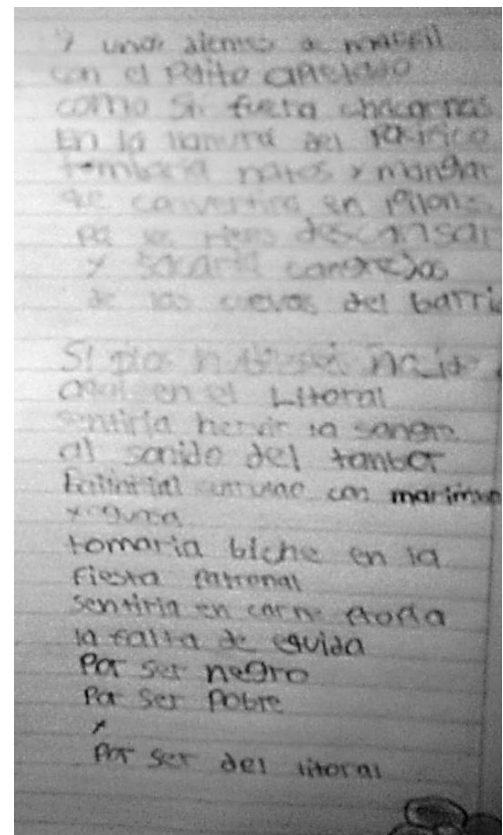 Y unos dientes de marfil
con el Pelito apretado
como si fuera chacarras
En la llanura del Pacifico
tumbaria natos y manglar
se convertira en Pilons
pa sus descansar
y sacaria cangrejos
de las cuevas del barri
Si Dios hubiese nacido
aqui en el Litoral
sentiria hervir la sangre
al sonido del tanbor
currulao con marimba
y guasa
tomaria biche en la
fiesta Patronal
sentiria en carne Propia
la falta de equida
Por ser negro
Por ser Pobre
y
Por ser del litoral